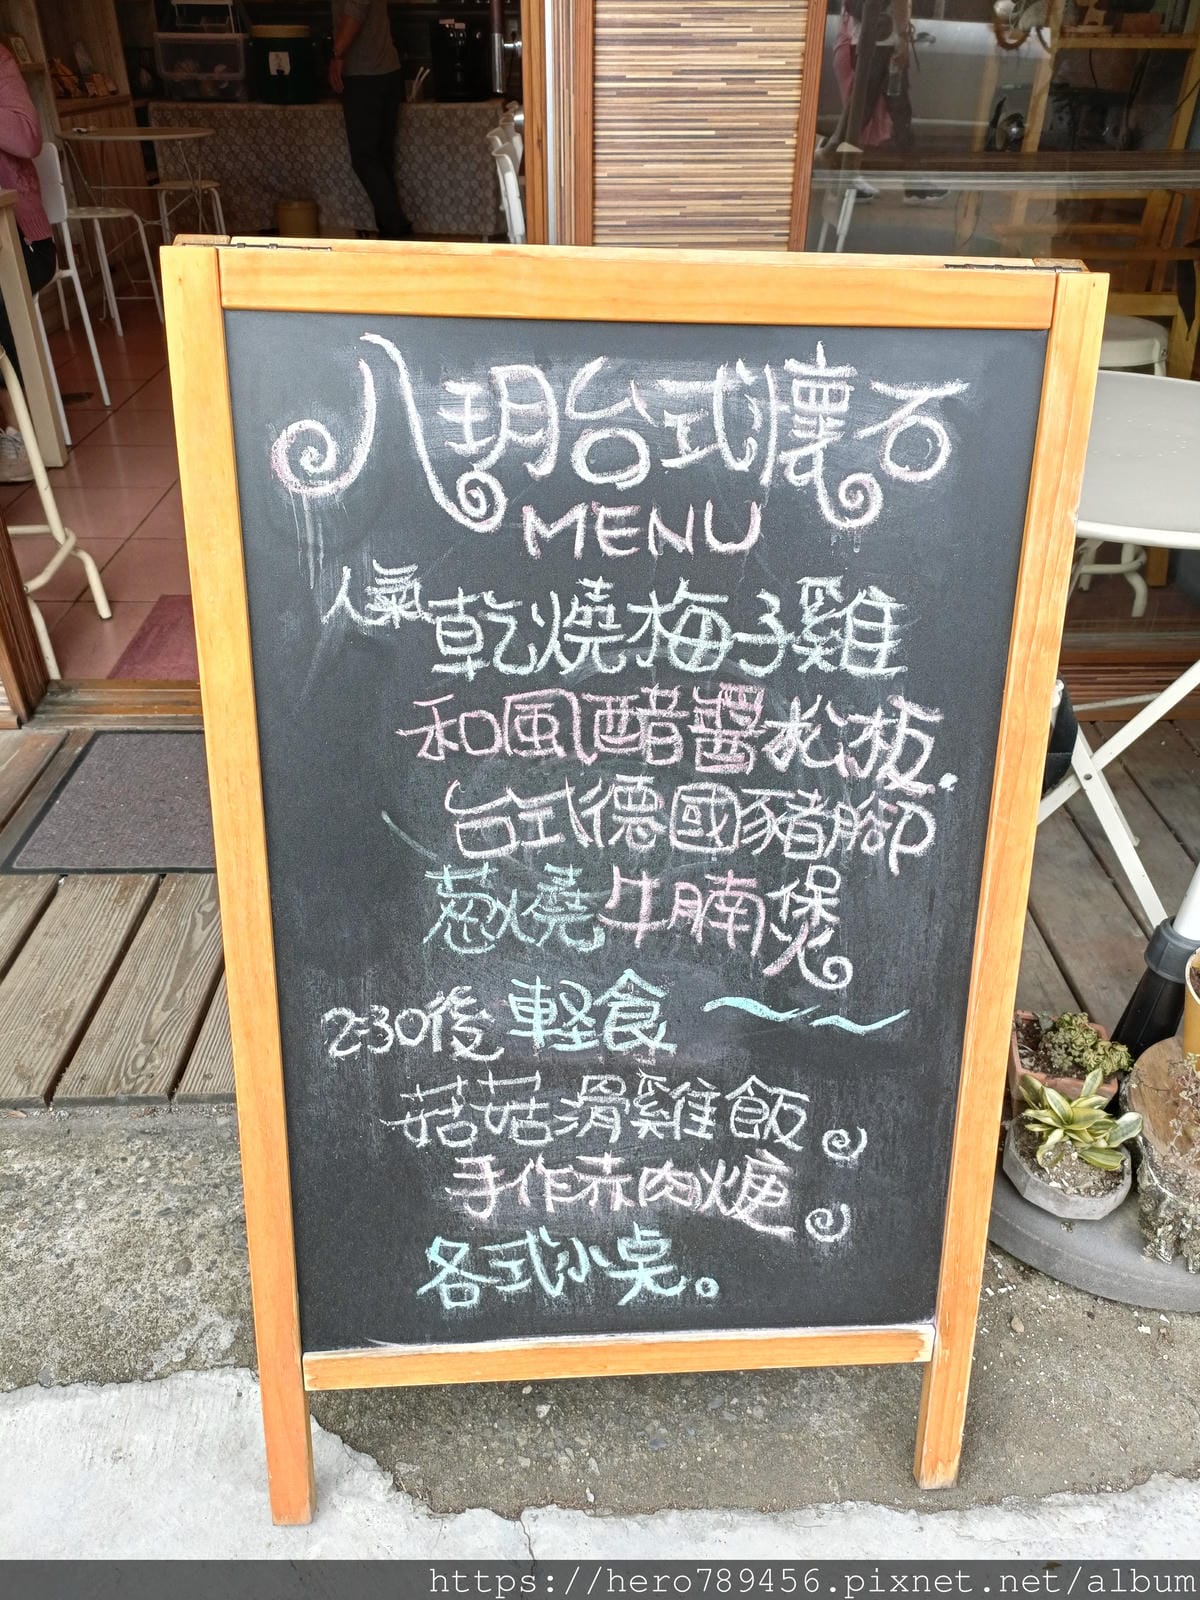 八玥台式懷石
MENU
人氣 乾燒梅子雞
和風醋醬松板
台式德國豬腳
葱燒牛腩煲
2:30後 軽食 ~~
菇菇滑雞飯
手作赤肉焿
各式小桌。
https://hero789456.pixnet.net/album